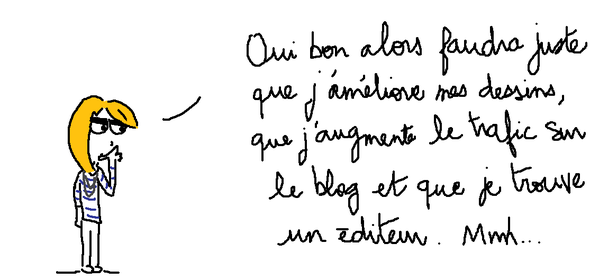 Oui bon alors faudra juste
que j'améliore mes dessins,
que j'augmente le trafic sur
le blog et que je trouve
un éditeur. Mmh...